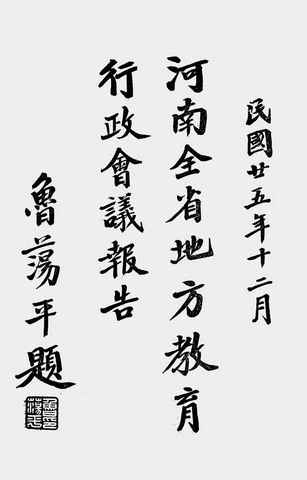 民國廿五年十二月
河南全省地方教育
行政會議報告
魯蕩平題
魯蕩平印